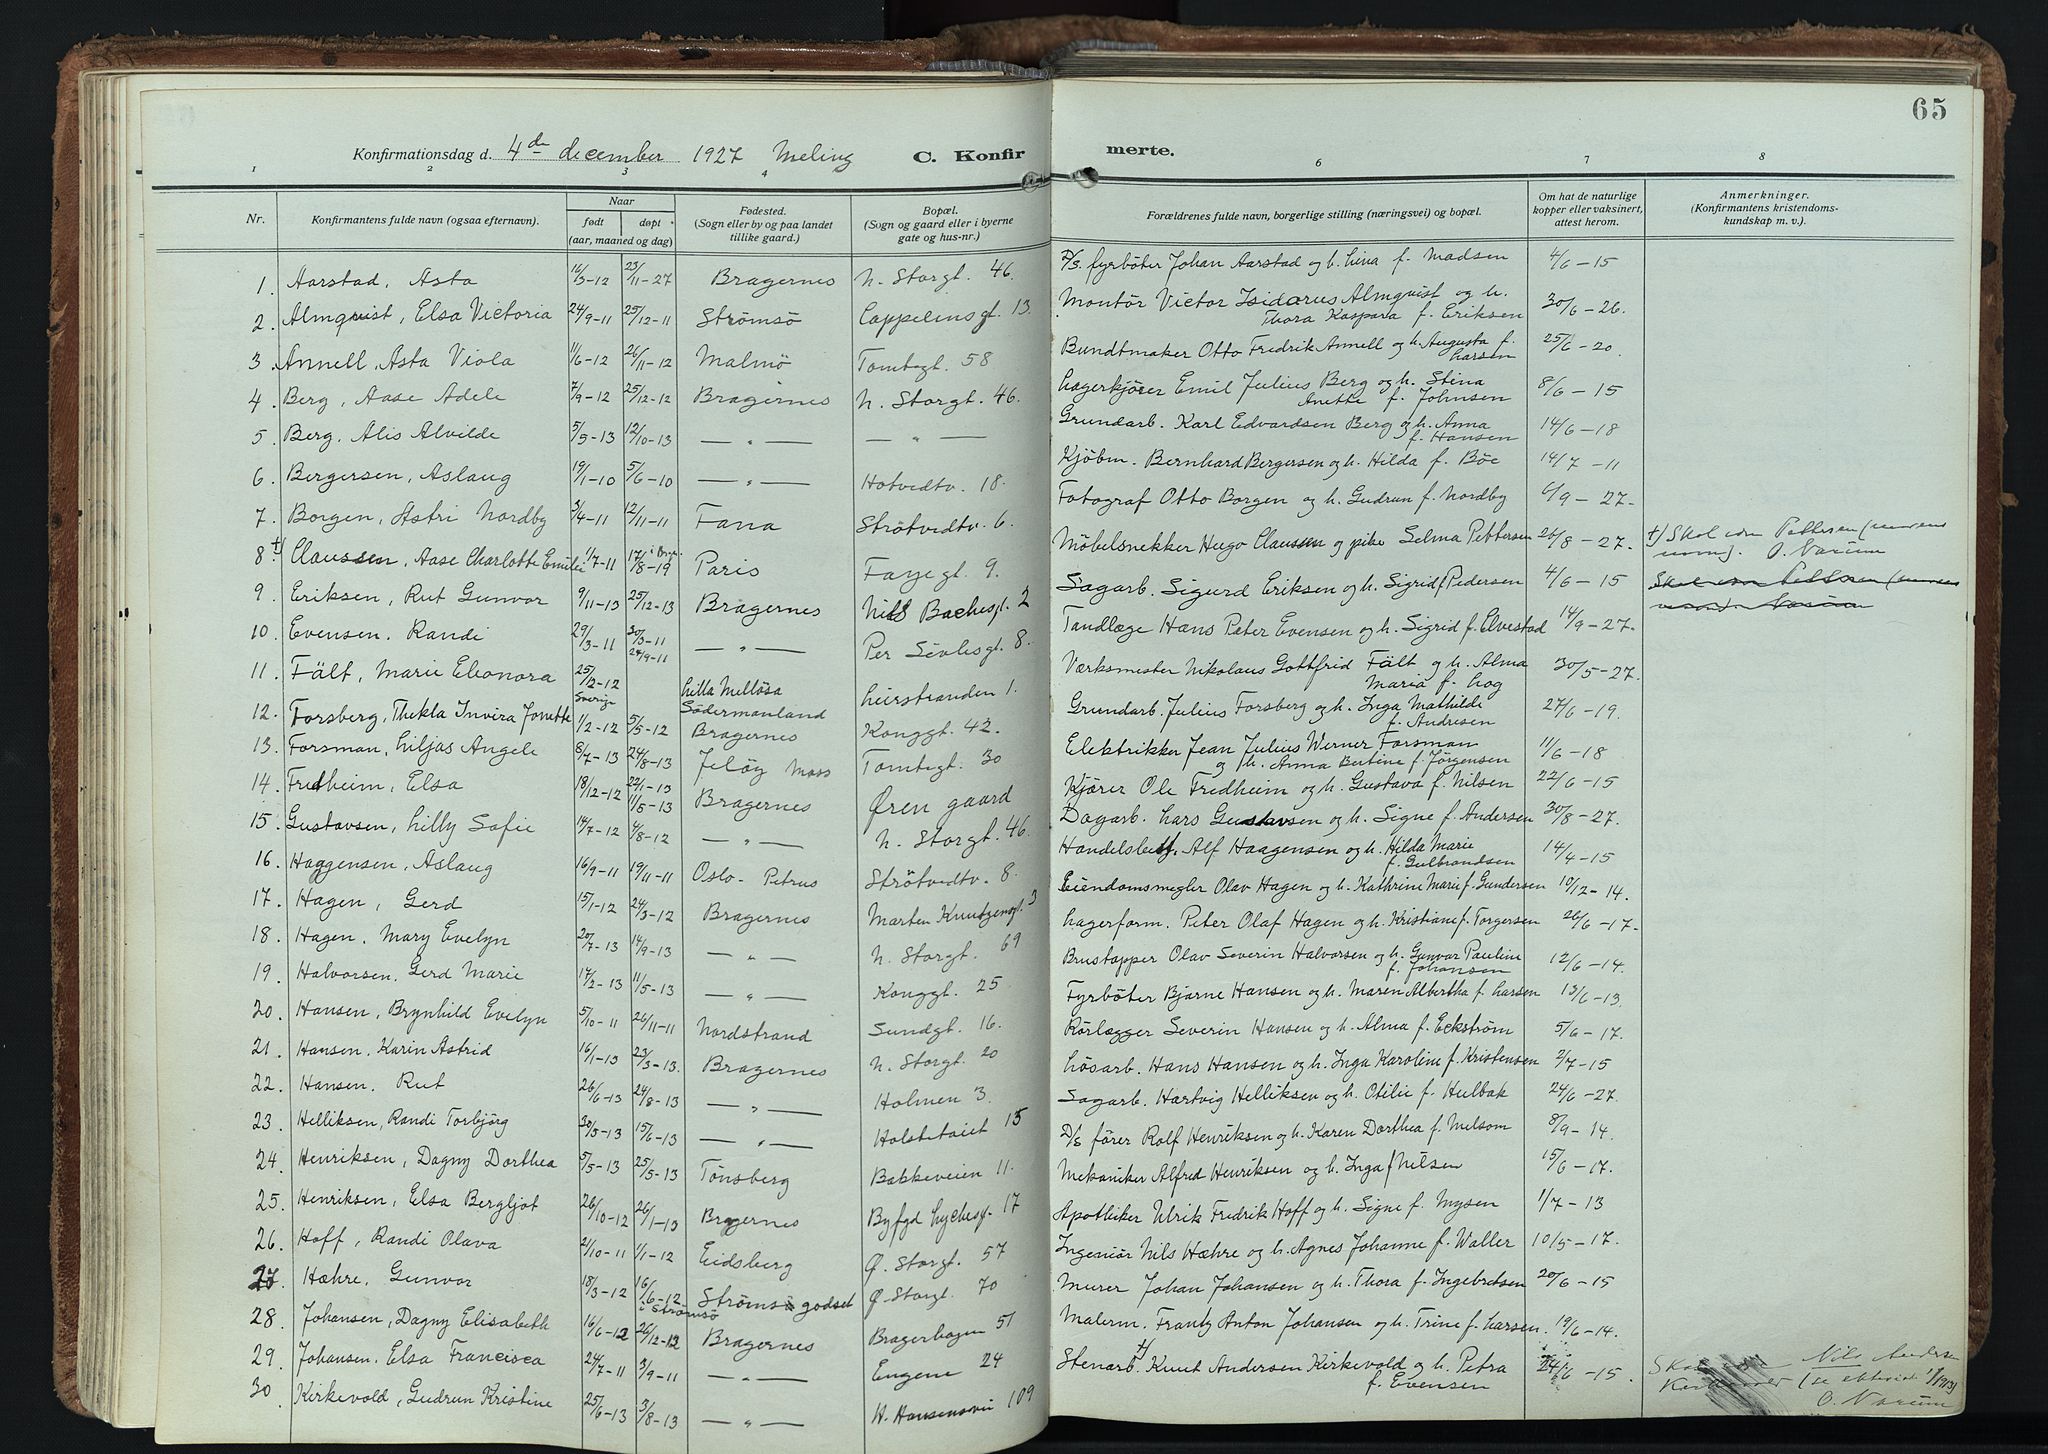 65
Konfirmationsdag d. 4de december 1927 Meling C. Konfirmerte.
1 2 3 4 6 7 8
Nr. Konfirmantens fulde navn (ogsaa efternavn). Naar født døpt (aar, maaned og dag) Fødested. (Sogn eller by og paa landet tillike gaard.) Bopæl. (Sogn og gaard eller i byerne gate og hus-nr.) Forældrenes fulde navn, borgerlige stilling (næringsvei) og bopæl. Om hat de naturlige kopper eller vaksinert, attest herom. Anmerkninger. (Konfirmantens kristendomskundskap m. v.)
1. Aarstad, Asta 16/3-12 23/11-27 Bragernes N. Storgt. 46. D/S. fyrbøter Johan Aarstad og h. Lina f. Madsen 4/6-15
2. Almqvist, Elsa Victoria 24/9-11 25/12-11 Strømsø Cappelensgt. 13. Montør Victor Isidorus Almqvist og h. Thora Kaspara f. Eriksen 30/6-26.
3. Annell, Asta Viola 11/6-12 26/11-12 Malmø Tomtegt. 58 Bundtmaker Otto Fredrik Annell og h. Augusta f. Larsen 25/6-20.
4. Berg, Aase Adele 7/9-12 25/12-12 Bragernes N. Storgt. 46. Lagerkjører Emil Julius Berg og h. Stina Anette f. Johnsen 8/6-15
5. Berg. Alis Alvilde 5/5-13 12/10-13 — „ — — „ — Grundarb. Karl Edvardsen Berg og h. Anna f. Hansen 14/6-18
6. Bergersen, Aslaug 19/1-10 5/6-10 — „ — Hotvedtv. 18. Kjøbm. Bernhard Bergersen og h. Hilda f. Bøe 14/7-11
7. Borgen, Astri Nordby 3/4-11 12/11-11 Fana Strøtvedtv. 6. Fotograf Otto Borgen og h. Gudrun f. Nordby 6/9-27.
8. †) Claussen, Aase Charlotte Emilie 1/7-11 17/8-19 Paris Fayegt. 9. Møbelsnekker Hugo Claussen og pike Selma Pettersen 26/8-27. †) Skal være Pettersen (morens navn). O. Narum
9. Eriksen, Rut Gunvor 9/11-13 25/12-13 Bragernes Nils Bachesgt. 2 Sagarb. Sigurd Eriksen og h. Sigrid f. Pedersen 4/6-15
10. Evensen, Randi 29/3-11 30/3-11 24/9-11 — „ — Per Sivlesgt. 8. Tandlæge Hans Peter Evensen og h. Sigrid f. Elvestad 14/9-27.
11. Fält, Marie Eleonora 25/12-12 Sverige Lilla Mellösa Södermanland Leirstranden 1. Verksmester Nikolaus Gottfrid Fält og h. Alma Maria f. Log 30/5-27.
12. Forsberg, Thekla Invira Jonette 1/2-12 5/5-12 Bragernes Konggt. 42. Grundarb. Julius Forsberg og h. Inga Mathilde f. Andresen 27/6-19.
13. Forsman, Liljas Angele 8/7-13 24/8-13 Jeløy Moss Tomtegt. 30 Elektrikker Jean Julius Werner Forsman og h. Anna Bertine f. Jørgensen 11/6-18
14. Fredheim, Elsa 18/12-12 22/1-13 11/5-13 Bragernes Øren gaard Kjører Ole Fredheim og h. Gustava f. Nilsen 22/6-15
15. Gustavsen, Lilly Sofie 14/7-12 4/8-12 — „ — N. Storgt. 46. Dagarb. Lars Gustavsen og h. Signe f. Andersen 30/8-27.
16. Haggensen, Aslaug 16/9-11 19/11-11 Oslo-Petrus Strøtvedtv. 8. Handelsbetj. Alf Haagensen og h. Hilda Marie f. Gulbrandsen 14/4-15
17. Hagen, Gerd 15/1-12 24/3-12 Bragernes Marten Knutzensgt. 3 Eiendomsmegler Olav Hagen og h. Kathrine Marie f. Gundersen 10/12-14.
18. Hagen, Mary Evelyn 20/7-13 14/9-13 — „ — N. Storgt. 69 Lagerform. Peter Olaf Hagen og h. Kristiane f. Torgersen 26/6-17.
19. Halvorsen. Gerd Marie 14/2-13 11/5-13 — „ — Konggt. 25 Brustapper Olav Severin Halvorsen og h. Gunvor Pauline f. Johansen 12/6-14.
20. Hansen, Brynhild Evelyn 5/10-11 26/11-11 Nordstrand Sundgt. 16. Fyrbøter Bjarne Hansen og h. Maren Albertha f. Larsen 13/6-13.
21. Hansen. Karin Astrid 16/1-13 23/3-13. Bragernes N. Storgt. 20 Rørlægger Severin Hansen og h. Alma f. Eckstrøm 5/6-17.
22. Hansen. Rut 26/6-13 24/8-13 — „ — Holmen 3. Løsarb. Hans Hansen og h. Inga Karoline f. Kristensen 2/7-15
23. Helliksen, Randi Torbjørg 30/3-13 15/6-13 — „ — Holstetaiet 15 Sagarb. Hartvig Helliksen og h. Otilie f. Hulbak 24/6-27.
24. Henriksen, Dagny Dorthea 5/5-13 25/5-13 Tønsberg Bakkeveien 11. D/S fører Rolf Henriksen og h. Karen Dorthea f. Melsom 8/9-14.
25. Henriksen, Elsa Bergljot 26/10-12 26/1-13 Bragernes Byfgd Lychesgt. 17 Mekaniker Alfred Henriksen og h. Inga f. Nilsen 15/6-17.
26. Hoff, Randi Olava 21/10-11 1/1-12 Eidsberg Ø. Storgt. 57 Apotheker Ulrik Fredrik Hoff og h. Signe f. Mysen 1/7-13
27. Hæhre, Gunvor 18/3-12 16/6-12 i Strømsø Strømsøgodset Ø. Storgt. 70 Ingeniør Nils Hæhre og h. Agnes Johanne f. Waller 10/5-17.
28. Johansen, Dagny Elisabeth 16/6-12 26/12-12 Bragernes Bragerhagen 51 Murer Johan Johansen og h. Thora f. Ingebretsen 20/6-15
29. Johansen. Elsa Francisca 24/7-11 3/9-11 — „ — Eugene 24 Malerm. Frantz Anton Johansen og h. Trine f. Larsen. 19/6-14.
30. Kirkevold, Gudrun Kristine 25/6-13 3/8-13 — „ — H. Hansensvei 109 Stenarb. †) Knut Andersen Kirkevold og h. Petra f. Evensen 24/6-15. Skal være Nils Andersen (se O. Narum